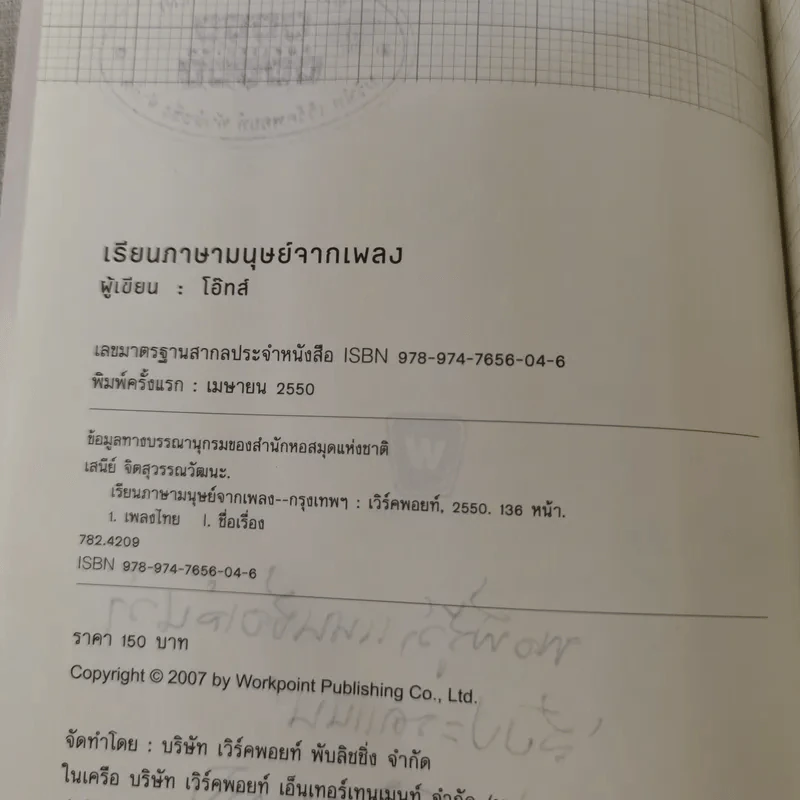 เรียนภาษามนุษย์จากเพลง
ผู้เขียน : โอ๊ทส์
เลขมาตรฐานสากลประจำหนังสือ ISBN 978-974-7656-04-6
พิมพ์ครั้งแรก : เมษายน 2550
W
ข้อมูลทางบรรณานุกรมของสำนักหอสมุดแห่งชาติ
เสนีย์ จิตสุวรรณวัฒนะ.
เรียนภาษามนุษย์จากเพลง--กรุงเทพฯ : เวิร์คพอยท์, 2550. 136 หน้า.
1. เพลงไทย I. ชื่อเรื่อง
782.4209
ISBN 978-974-7656-04-6
ราคา 150 บาท
Copyright © 2007 by Workpoint Publishing Co., Ltd.
จัดทำโดย : บริษัท เวิร์คพอยท์ พับลิชชิ่ง จำกัด
ในเครือ บริษัท เวิร์คพอยท์ เอ็นเทอร์เทนเมนท์ จำกัด